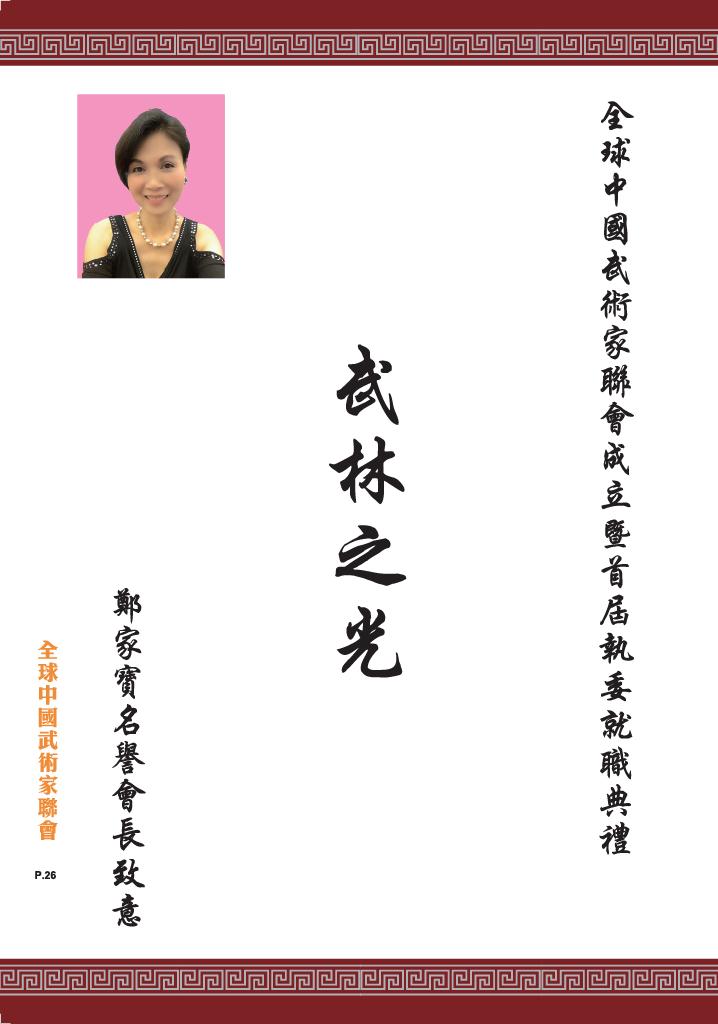 全球中國武術家聯會成立暨首屆執委就職典禮
武林之光
鄭家寶名譽會長致意
全球中國武術家聯會
P.26